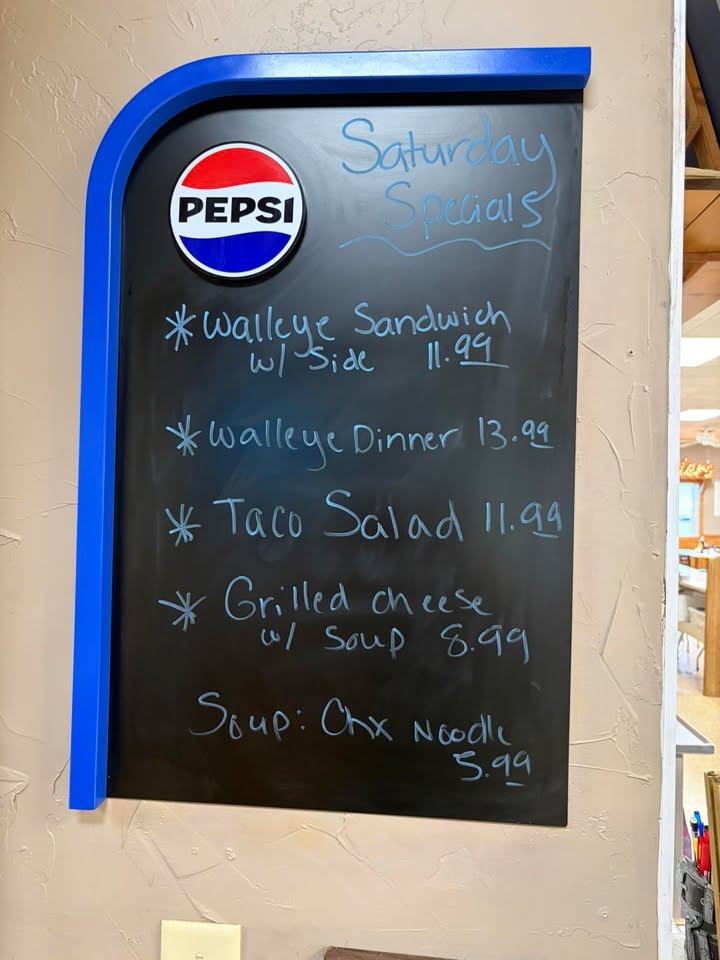 PEPSI
Saturday
Specials
* Walleye Sandwich
w/ Side 11.99
* Walleye Dinner 13.99
* Taco Salad 11.99
* Grilled cheese
w/ Soup 8.99
Soup: Chx Noodle
5.99